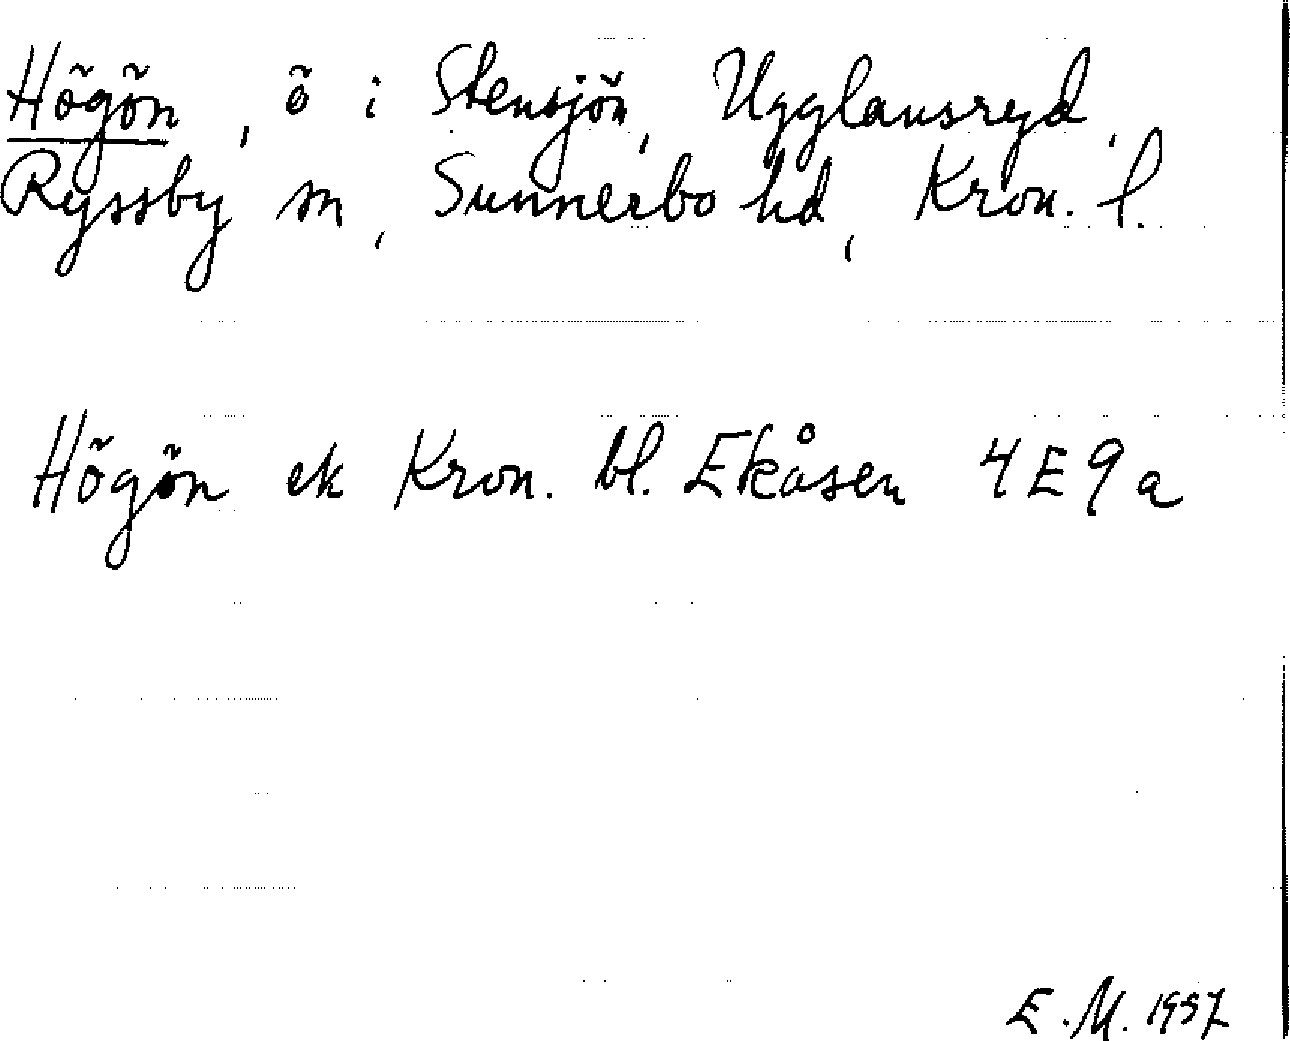 Högön, ö i Stensjön, Ugglansryd,
Ryssby sn, Sunnerbo hd, Kron. l.
Högön ek Kron. bl. Ekåsen 4E9a
E.M. 1957